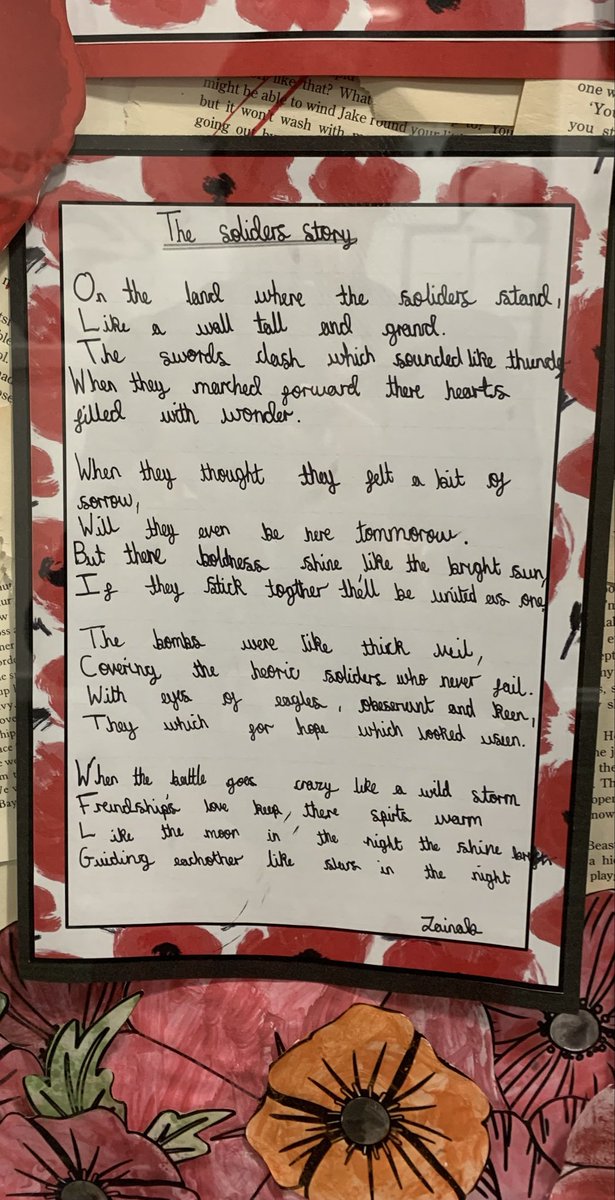 like that? What
might be able to wind Jake round your
but it won't wash with
going out
one w
'You
you st
The soliders story
On the land where the soliders stand,
Like a wall tall and grand.
The swords clash which sounded like thunde
When they marched forward there hearts
filled with wonder.
When they thought they felt a bit of
sorrow,
Will they even be here tommorow.
But there boldness shine like the bright sun,
If they stick togther the'll be united as one,
The bombs were like thick veil,
Covering the heoric soliders who never fail.
With eyes of eagles, obeservant and keen,
They which for hope which looked useen.
When the battle goes crazy like a wild storm
Freindship's love keep, there spirts warm
Like the moon in the night the shine bright
Guiding eachother like stars in the night
Zainab